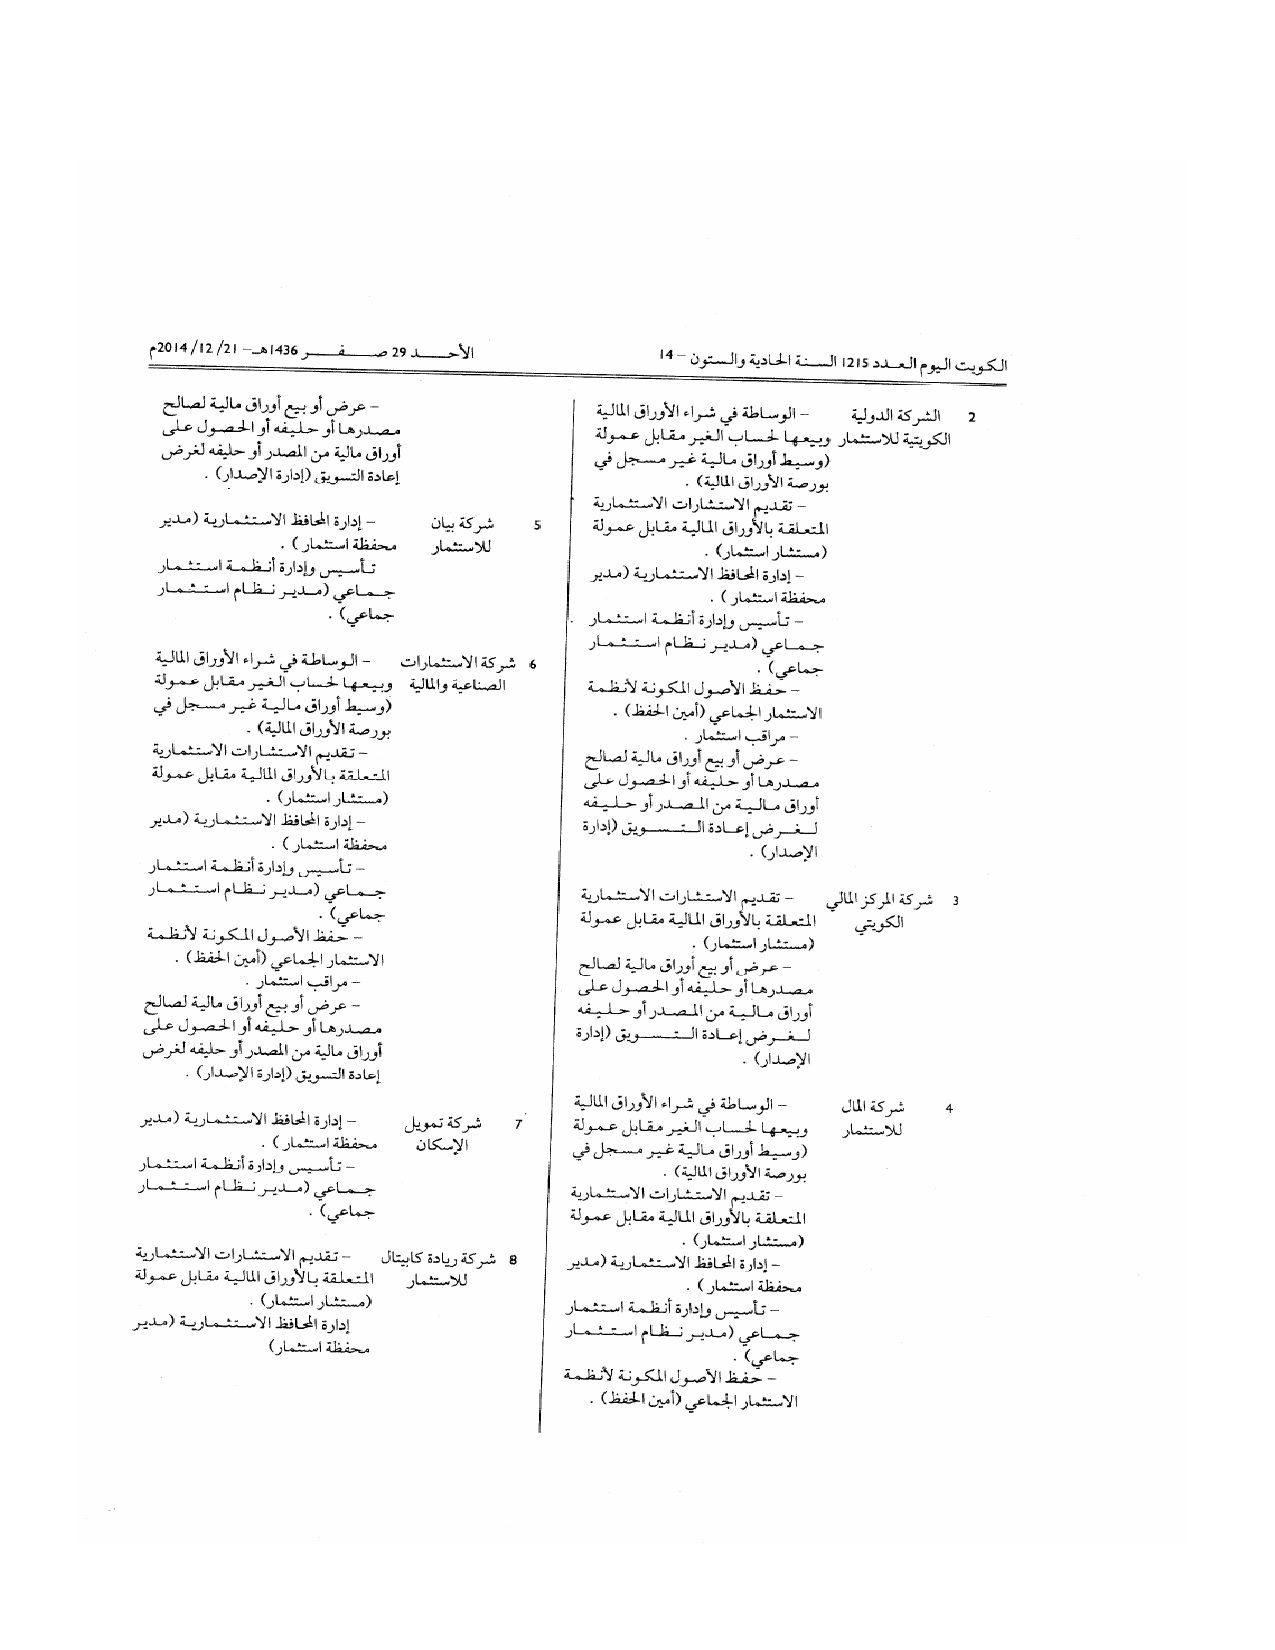 الكويت اليوم العدد 1215 السنة الحادية والستون - 14
الأحد 29 صفر 1436هـ - 21/ 12/ 2014م
2 الشركة الدولية - الوساطة في شراء الأوراق المالية
الكويتية للاستثمار وبيعها لحساب الغير مقابل عمولة
(وسيط أوراق مالية غير مسجل في
بورصة الأوراق المالية) .
- تقديم الاستشارات الاستثمارية
المتعلقة بالأوراق المالية مقابل عمولة
(مستشار استثمار) .
- إدارة المحافظ الاستثمارية (مدير
محفظة استثمار ) .
- تأسيس وإدارة أنظمة استثمار
جماعي (مدير نظام استثمار
جماعي) .
- حفظ الأصول المكونة لأنظمة
الاستثمار الجماعي (أمين الحفظ) .
- مراقب استثمار .
- عرض أو بيع أوراق مالية لصالح
مصدرها أو حليفه أو الحصول على
أوراق مالية من المصدر أو حليفه
لغرض إعادة التسويق (إدارة
الإصدار) .
3 شركة المركز المالي - تقديم الاستشارات الاستثمارية
الكويتي المتعلقة بالأوراق المالية مقابل عمولة
(مستشار استثمار) .
- عرض أو بيع أوراق مالية لصالح
مصدرها أو حليفه أو الحصول على
أوراق مالية من المصدر أو حليفه
لغرض إعادة التسويق (إدارة
الإصدار) .
4 شركة المال - الوساطة في شراء الأوراق المالية
للاستثمار وبيعها لحساب الغير مقابل عمولة
(وسيط أوراق مالية غير مسجل في
بورصة الأوراق المالية) .
- تقديم الاستشارات الاستثمارية
المتعلقة بالأوراق المالية مقابل عمولة
(مستشار استثمار) .
- إدارة المحافظ الاستثمارية (مدير
محفظة استثمار ) .
- تأسيس وإدارة أنظمة استثمار
جماعي (مدير نظام استثمار
جماعي) .
- حفظ الأصول المكونة لأنظمة
الاستثمار الجماعي (أمين الحفظ) .
- عرض أو بيع أوراق مالية لصالح
مصدرها أو حليفه أو الحصول على
أوراق مالية من المصدر أو حليفه لغرض
إعادة التسويق (إدارة الإصدار) .
5 شركة بيان - إدارة المحافظ الاستثمارية (مدير
للاستثمار محفظة استثمار ) .
تأسيس وإدارة أنظمة استثمار
جماعي (مدير نظام استثمار
جماعي) .
6 شركة الاستثمارات - الوساطة في شراء الأوراق المالية
الصناعية والمالية وبيعها لحساب الغير مقابل عمولة
(وسيط أوراق مالية غير مسجل في
بورصة الأوراق المالية) .
- تقديم الاستشارات الاستثمارية
المتعلقة بالأوراق المالية مقابل عمولة
(مستشار استثمار) .
- إدارة المحافظ الاستثمارية (مدير
محفظة استثمار) .
- تأسيس وإدارة أنظمة استثمار
جماعي (مدير نظام استثمار
جماعي) .
- حفظ الأصول المكونة لأنظمة
الاستثمار الجماعي (أمين الحفظ) .
- مراقب استثمار .
- عرض أو بيع أوراق مالية لصالح
مصدرها أو حليفه أو الحصول على
أوراق مالية من المصدر أو حليفه لغرض
إعادة التسويق (إدارة الإصدار) .
7 شركة تمويل - إدارة المحافظ الاستثمارية (مدير
الإسكان محفظة استثمار ) .
- تأسيس وإدارة أنظمة استثمار
جماعي (مدير نظام استثمار
جماعي) .
8 شركة ريادة كابيتال - تقديم الاستشارات الاستثمارية
للاستثمار المتعلقة بالأوراق المالية مقابل عمولة
(مستشار استثمار) .
إدارة المحافظ الاستثمارية (مدير
محفظة استثمار)